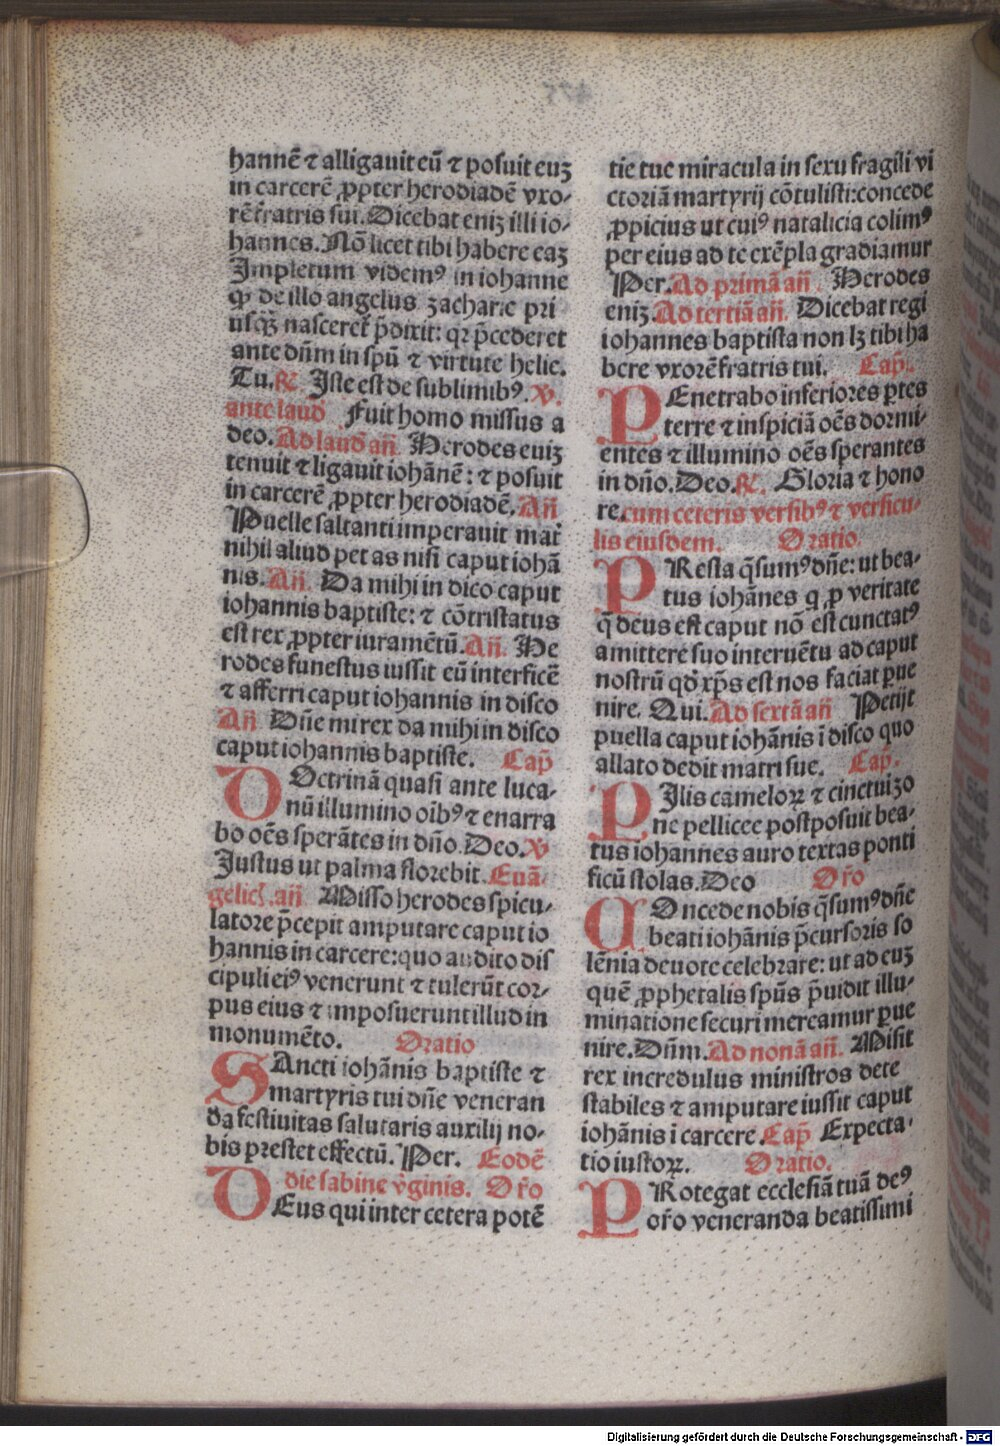 hannē ⁊ alligauit eū ⁊ posuit euꝫ
in carcerē ꝓpter herodiadē vxo⸗
rē fratris sui. Dicebat eniꝫ illi io⸗
hannes. Nō licet tibi habere eaꝫ
Impletum videmꝰ in iohanne
ꝙ de illo angelus zacharie pri
usq̄ꝫ nasceret᷑ p̄dixit: qꝛ p̄cederet
ante dn̄m in spū ⁊ virtute helie.
Tu. ℟. Iste est de sublimibꝰ. ℣.
ante laud̄ Fuit homo missus a
deo. Ad laud̄ an̄. Herodes eniꝫ
tenuit ⁊ ligauit iohānē: ⁊ posuit
in carcerē ꝓpter herodiadē. An̄
Puelle saltanti imperauit mat᷑
nihil aliud petas nisi caput iohā
nis. An̄. Da mihi in disco caput
iohannis baptiste: ⁊ cōtristatus
est rex ꝓpter iuramētū. An̄. He
rodes funestus iussit eū interficē
⁊ afferri caput iohannis in disco
An̄ Dn̄e mi rex da mihi in disco
caput iohannis baptiste. Cap̄
DOctrinā quasi ante luca⸗
nū illumino oībꝰ ⁊ enarra
bo oēs sperātes in dn̄o. Deo. ℣
Justus ut palma florebit. Euā⸗
gelicꝭ. an̄ Misso herodes spicu⸗
latore p̄cepit amputare caput io
hannis in carcere: quo audito dis
cipuli eiꝰ venerunt ⁊ tulerūt cor⸗
pus eius ⁊ imposuerunt illud in
monumēto. Oratio
SAncti iohānis baptiste ⁊
martyris tui dn̄e veneran
da festiuitas salutaris auxilij no⸗
bis prestet effectū. Per. Eodē
die sabine v̄ginis. Or̄o
DEus qui inter cetera potē
tie tue miracula in sexu fragili vi
ctoriā martyrij cōtulisti: concede
ꝓpicius ut cuiꝰ natalicia colimꝰ
per eius ad te exēpla gradiamur
Per. Ad primā an̄. Herodes
eniꝫ. Ad tertiā an̄. Dicebat regi
iohannes baptista non lꝫ tibi ha
bere vxorē fratris tui. Cap̄.
PEnetrabo inferiores ꝑtes
terre ⁊ inspiciā oēs dormi⸗
entes ⁊ illumino oēs sperantes
in dn̄o. Deo. ℟. Gloria ⁊ hono
re. cum ceteris versibꝰ ⁊ versicu⸗
lis eiusdem. Oratio.
PResta q̄sumꝰ dn̄e: ut bea⸗
tus iohānes q ꝓ veritate
q̄ deus est caput nō est cunctatꝰ
amittere suo interuētu ad caput
nostrū qd̄ xp̄s est nos faciat ꝑue
nire. Qui. Ad sextā an̄ Petijt
puella caput iohānis ī disco quo
allato dedit matri sue. Cap̄.
PIlis cameloꝝ ⁊ cinctui zo
ne pellicee postposuit bea⸗
tus iohannes auro textas ponti
ficū stolas. Deo Or̄o
COncede nobis q̄sumꝰ dn̄e
beati iohānis p̄cursoris so
lēnia deuote celebrare: ut ad euꝫ
quē ꝓphetalis spūs p̄uidit illu⸗
minatione securi mercamur ꝑue
nire. Dn̄m. Ad nonā an̄. Misit
rex incredulus ministros dete
stabiles ⁊ amputare iussit caput
iohānis ī carcere. Cap̄ Expecta⸗
tio iustoꝝ. Oratio.
PRotegat ecclesiā tuā deꝰ
or̄o veneranda beatissimi
Digitalisierung gefördert durch die Deutsche Forschungsgemeinschaft - DFG